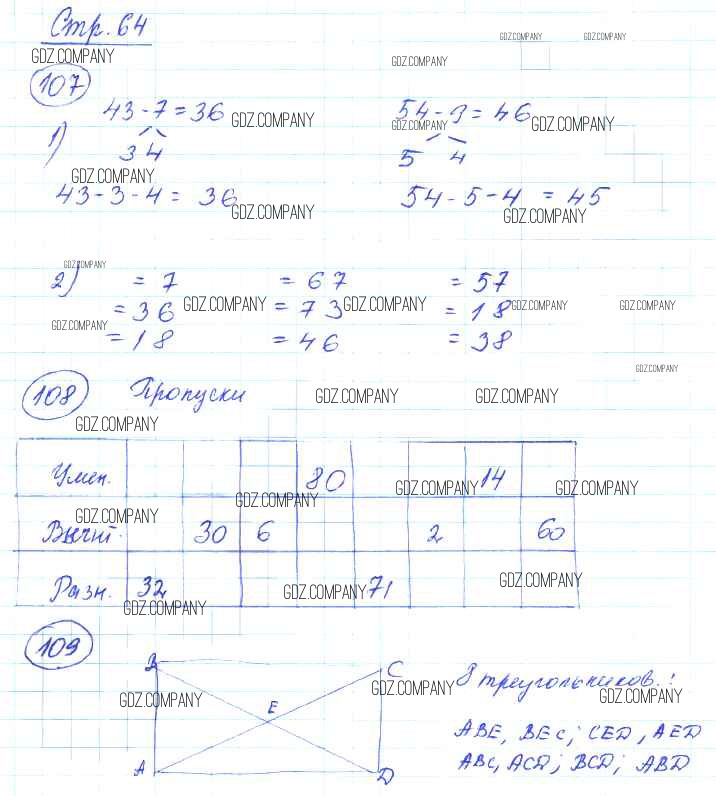 Стр. 64
GDZ.COMPANY GDZ.COMPANY GDZ.COMPANY GDZ.COMPANY
107
1) 43-7=36 GDZ.COMPANY 54-9=46 GDZ.COMPANY
GDZ.COMPANY
3 4 5 4
GDZ.COMPANY
43-3-4= 36 54-5-4 = 45
GDZ.COMPANY GDZ.COMPANY
GDZ.COMPANY
2) = 7 = 67 = 57
= 36 GDZ.COMPANY = 73 GDZ.COMPANY = 18 GDZ.COMPANY GDZ.COMPANY
GDZ.COMPANY
= 18 = 46 = 38
GDZ.COMPANY
108 Пропуски GDZ.COMPANY GDZ.COMPANY
GDZ.COMPANY
Умен. 80 GDZ.COMPANY 14 GDZ.COMPANY
GDZ.COMPANY GDZ.COMPANY
Вычит. 30 6 2 60
Разн. 32 GDZ.COMPANY 71 GDZ.COMPANY
GDZ.COMPANY
109
B C
8 треугольников:
GDZ.COMPANY E GDZ.COMPANY GDZ.COMPANY
ABE, BEC; CED, AED
ABC, ACD; BCD; ABD
A D